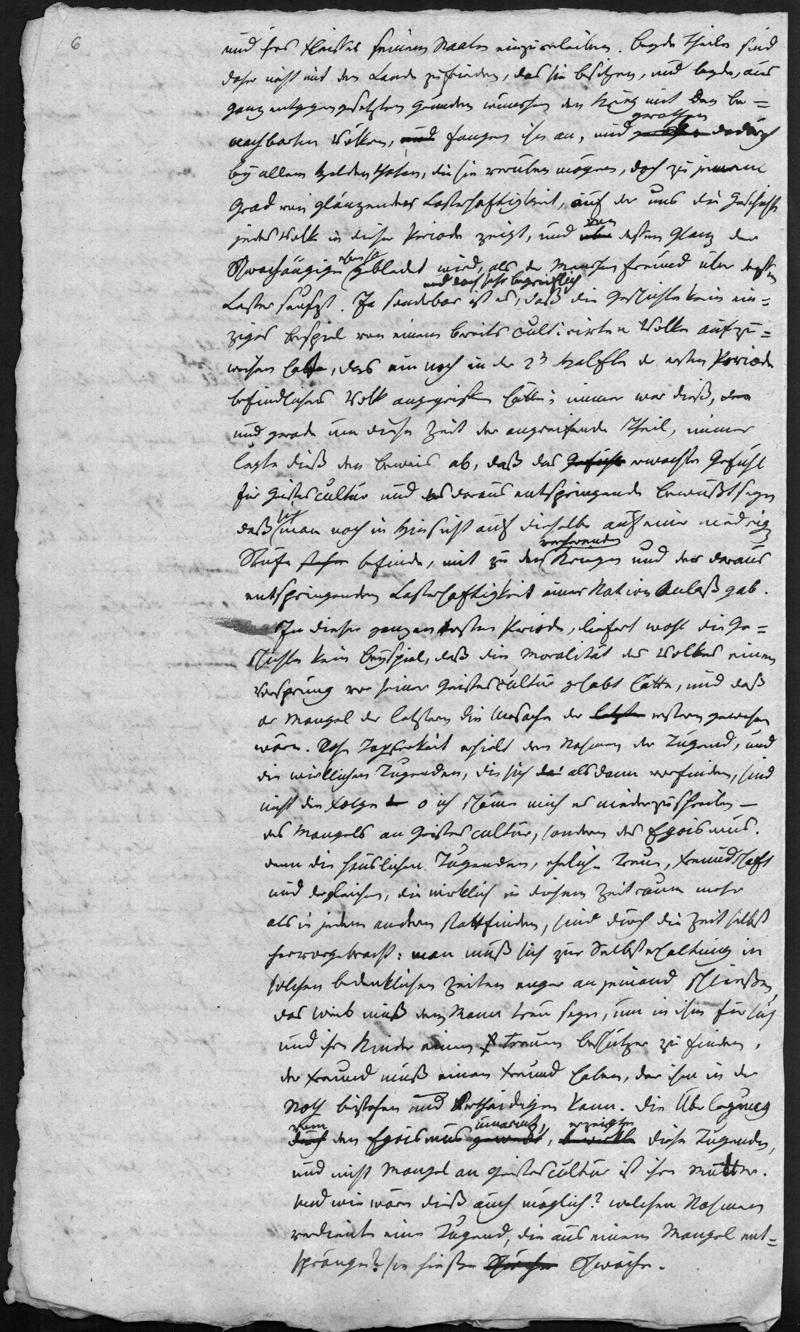 6
und das Kleinste seinem Staate einzuverleiben. Beyde Theile sind
daher nicht mit dem Lande zufrieden, das sie besitzen, und beyde, aus
ganz entgegengesetzten Gründen wünschen den Krieg mit den be=
nachbarten Völkern, und fangen ihn an, und gerathen dadurch
bey allem Heldenthaten, die sie verüben mögen, doch zu jenem
Grad von glänzender Lasterhaftigkeit, auf der uns die Geschichte
jedes Volk in dieser Periode zeigt, und von dessen Glanz der
ebenso geblendet wird, als der Menschenfreund über dessen
Laster seufzt. Ja sonderbar und doch sehr begreiflich ist es, daß die Geschichte kein ein=
ziges Beyspiel von einem bereits cultivirten Volke aufzu=
weisen hat, das ein noch in der 2n Hälfte der ersten Periode
befindliches Volk angegriffen hätte; immer war dieß, den
und gerade um diese Zeit der angreifende Theil, immer
legte dieß den Beweis ab, daß das Gefühl erwachte Gefühl
für Geistescultur und das daraus entspringende Bewußtseyn
daß man sich noch in Hinsicht auf dieselbe auf einer niedrigen
Stufe befinde, mit zu den verheerenden Kriegen und der daraus
entspringenden Lasterhaftigkeit einer Nation Anlaß gab.
In dieser ganzen ersten Periode, liefert wohl die Ge=
schichte kein Beyspiel, daß die Moralität des Volkes einen
Vorsprung vor seiner Geistescultur gehabt hätte, und daß
der Mangel der letztern die Ursache der letzte erstern gewesen
wäre. Rohe Tapferkeit erhielt den Nahmen der Tugend, und
die wirklichen Tugenden, die sich alsdann vorfinden, sind
nicht die Folge o ich schäme mich es niederzuschreiben —
des Mangels an Geistescultur, sondern des Egoismus.
denn die häuslichen Tugenden, eheliche Treue, Freundschaft
und dergleichen, die wirklich in diesem Zeitraum mehr
als in jedem andern stattfinden, sind durch die Zeit selbst
hervorgebracht: man muß sich zur Selbsterhaltung in
solchen bedenklichen Zeiten enger an jemand schließen,
das Weib muß dem Mann treu seyn, um in ihm für sich
und ihre Kinder einen treuen Beschützer zu finden,
der Freund muß einen Freund haben, der ihm in der
Noth beistehen und vertheidigen kann. Die Überlegung
vom den Egoismus erzeugten diese Tugenden,
und nicht Mangel an Geistescultur ist ihre Mutter.
Und wie wäre dieß auch möglich? welchen Nahmen
verdiente eine Tugend, die aus einem Mangel ent=
spränge? sie hieße Schwäche.